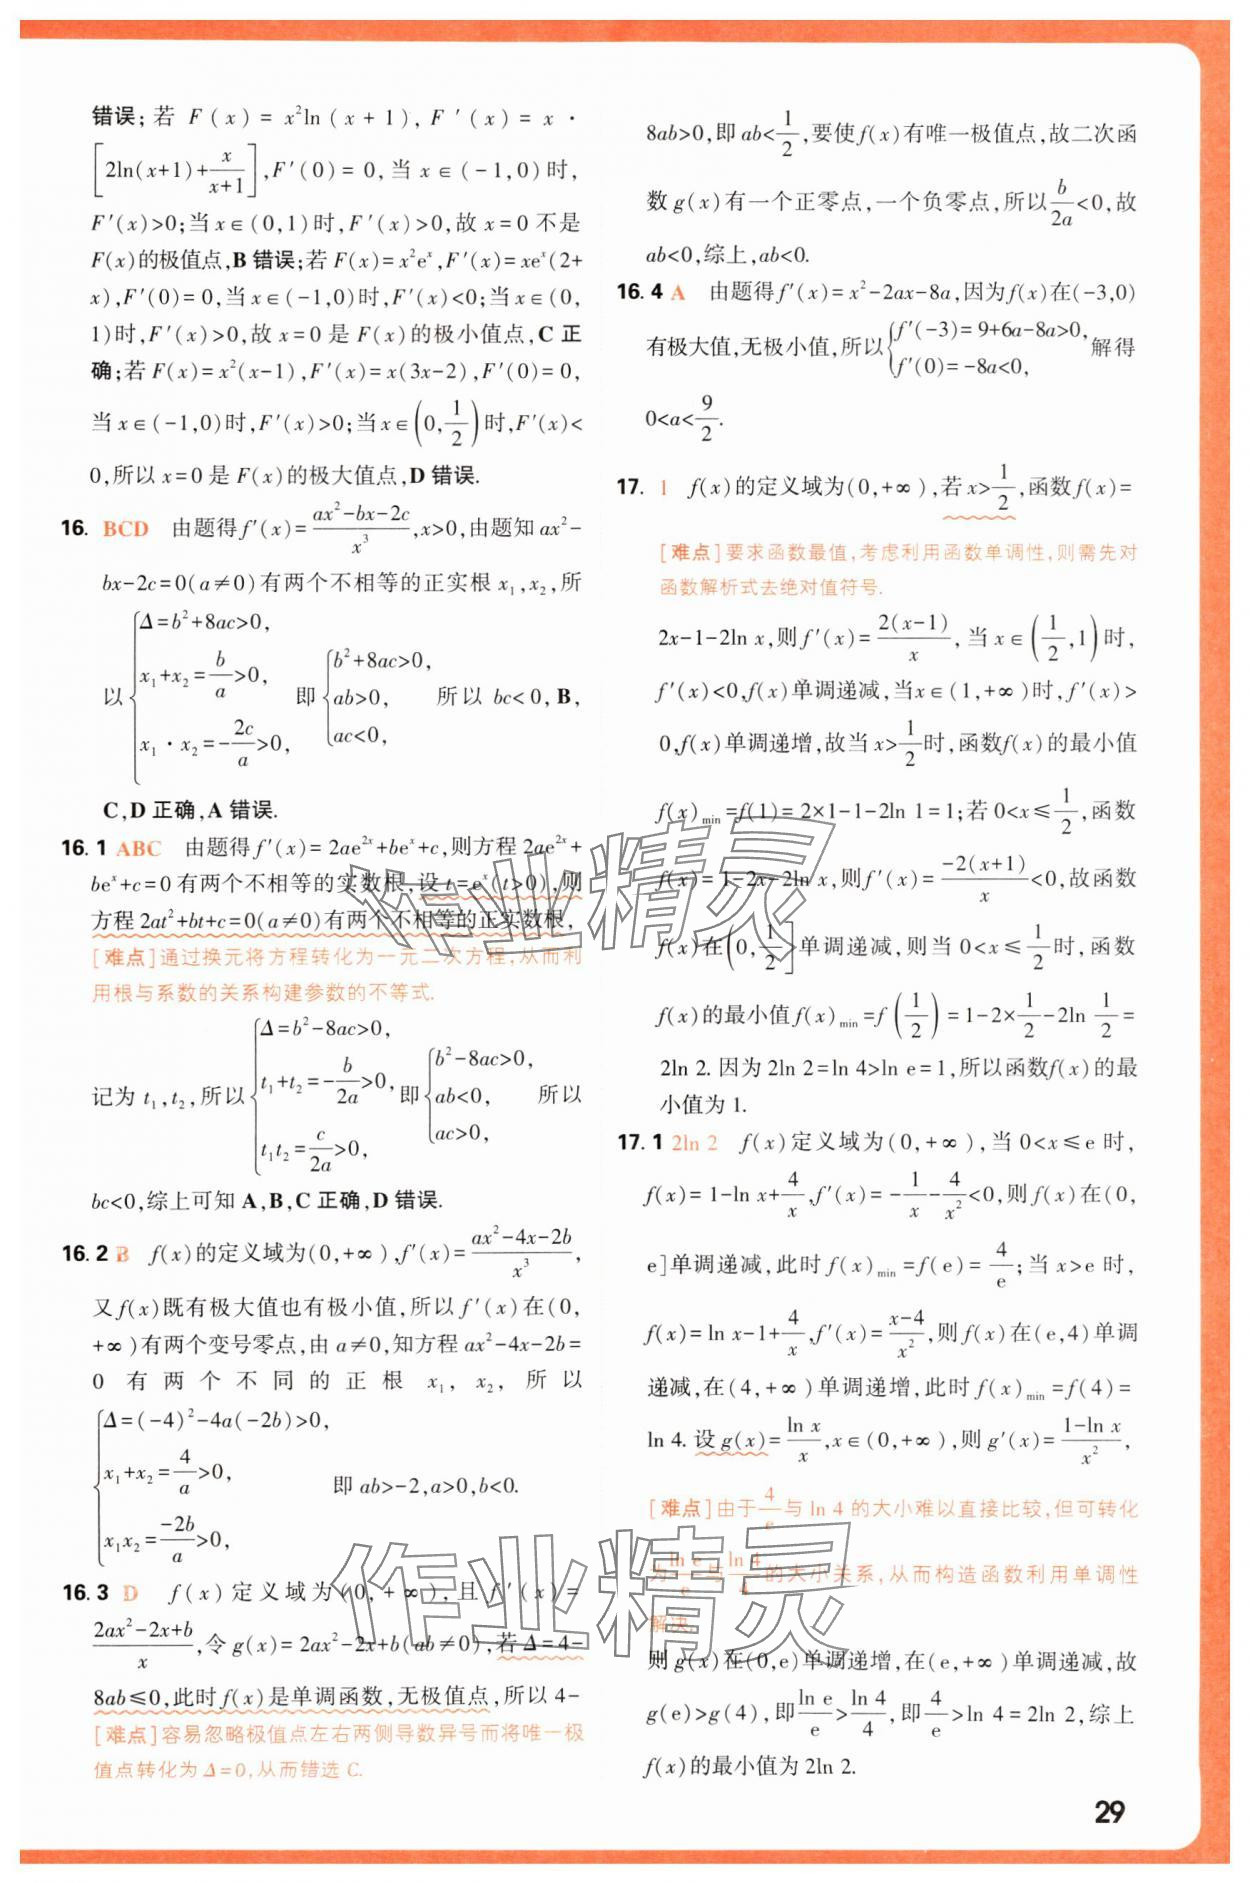 错误;若 F(x)=x²ln(x+1),F′(x)=x·
[2ln(x+1)+x/(x+1)],F′(0)=0,当 x∈(-1,0)时,
F′(x)>0;当x∈(0,1)时,F′(x)>0,故 x=0 不是
F(x)的极值点,B 错误;若F(x)=x²eˣ,F′(x)=xeˣ(2+
x),F′(0)=0,当x∈(-1,0)时,F′(x)<0;当x∈(0,
1)时,F′(x)>0,故 x=0 是 F(x)的极小值点,C 正
确;若F(x)=x²(x-1),F′(x)=x(3x-2),F′(0)=0,
当x∈(-1,0)时,F′(x)>0;当x∈(0,1/2)时,F′(x)<
0,所以 x=0 是 F(x)的极大值点,D 错误.
16. BCD 由题得f′(x)=(ax²-bx-2c)/x³,x>0,由题知 ax²-
bx-2c=0(a≠0)有两个不相等的正实根 x₁,x₂,所
以{Δ=b²+8ac>0, x₁+x₂=b/a>0, x₁·x₂=-2c/a>0, 即{b²+8ac>0, ab>0, ac<0, 所以 bc<0,B,
C,D 正确,A 错误.
16.1 ABC 由题得f′(x)=2ae²ˣ+beˣ+c,则方程 2ae²ˣ+
beˣ+c=0有两个不相等的实数根,设 t=eˣ(t>0),则
方程 2at²+bt+c=0(a≠0)有两个不相等的正实数根,
[难点]通过换元将方程转化为一元二次方程,从而利
用根与系数的关系构建参数的不等式.
记为 t₁,t₂,所以{Δ=b²-8ac>0, t₁+t₂=-b/2a>0, t₁t₂=c/2a>0, 即{b²-8ac>0, ab<0, ac>0, 所以
bc<0,综上可知 A,B,C 正确,D 错误.
16.2 B f(x)的定义域为(0,+∞),f′(x)=(ax²-4x-2b)/x³,
又f(x)既有极大值也有极小值,所以f′(x)在(0,
+∞)有两个变号零点,由 a≠0,知方程 ax²-4x-2b=
0 有两个不同的正根 x₁, x₂, 所以
{Δ=(-4)²-4a(-2b)>0, x₁+x₂=4/a>0, x₁x₂=-2b/a>0, 即 ab>-2,a>0,b<0.
16.3 D f(x)定义域为(0,+∞),且 f′(x)=
(2ax²-2x+b)/x,令 g(x)=2ax²-2x+b(ab≠0),若 Δ=4-
8ab≤0,此时f(x)是单调函数,无极值点,所以 4-
[难点]容易忽略极值点左右两侧导数异号而将唯一极
值点转化为 Δ=0,从而错选 C.
8ab>0,即 ab<1/2,要使f(x)有唯一极值点,故二次函
数 g(x)有一个正零点,一个负零点,所以b/2a<0,故
ab<0,综上,ab<0.
16.4 A 由题得f′(x)=x²-2ax-8a,因为f(x)在(-3,0)
有极大值,无极小值,所以{f′(-3)=9+6a-8a>0, f′(0)=-8a<0, 解得
0<a<9/2.
17. 1 f(x)的定义域为(0,+∞),若x>1/2,函数f(x)=
[难点]要求函数最值,考虑利用函数单调性,则需先对
函数解析式去绝对值符号.
2x-1-2ln x,则f′(x)=2(x-1)/x,当 x∈(1/2,1)时,
f′(x)<0,f(x)单调递减,当x∈(1,+∞)时,f′(x)>
0,f(x)单调递增,故当 x>1/2时,函数f(x)的最小值
f(x)min=f(1)=2×1-1-2ln 1=1;若 0<x≤1/2,函数
f(x)=1-2x-2ln x,则f′(x)=-2(x+1)/x<0,故函数
f(x)在(0,1/2]单调递减,则当 0<x≤1/2时,函数
f(x)的最小值f(x)min=f(1/2)=1-2×1/2-2ln 1/2=
2ln 2.因为 2ln 2=ln 4>ln e=1,所以函数f(x)的最
小值为 1.
17.1 2ln 2 f(x)定义域为(0,+∞),当 0<x≤e 时,
f(x)=1-ln x+4/x,f′(x)=-1/x-4/x²<0,则f(x)在(0,
e]单调递减,此时f(x)min=f(e)=4/e;当 x>e 时,
f(x)=ln x-1+4/x,f′(x)=(x-4)/x²,则f(x)在(e,4)单调
递减,在(4,+∞)单调递增,此时f(x)min=f(4)=
ln 4.设 g(x)=ln x/x,x∈(0,+∞),则 g′(x)=(1-ln x)/x²,
[难点]由于4/e与 ln 4 的大小难以直接比较,但可转化
为ln e/e与ln 4/4的大小关系,从而构造函数利用单调性
解决.
则 g(x)在(0,e)单调递增,在(e,+∞)单调递减,故
g(e)>g(4),即ln e/e>ln 4/4,即4/e>ln 4=2ln 2,综上
f(x)的最小值为 2ln 2.
29
作业精灵
作业精灵